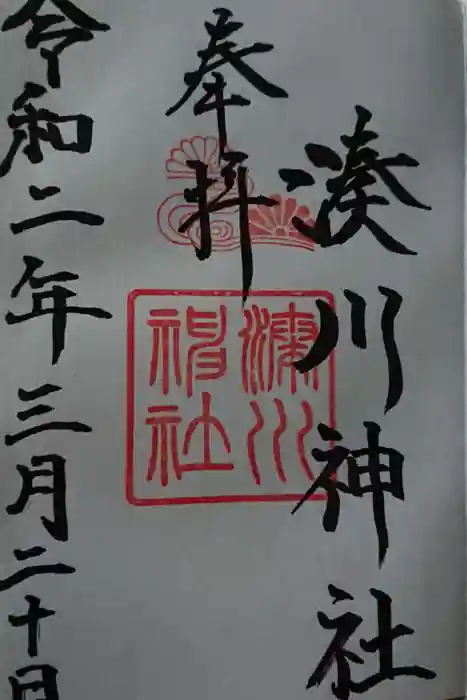 湊川神社
奉拝
湊川
神社
令和二年三月二十日